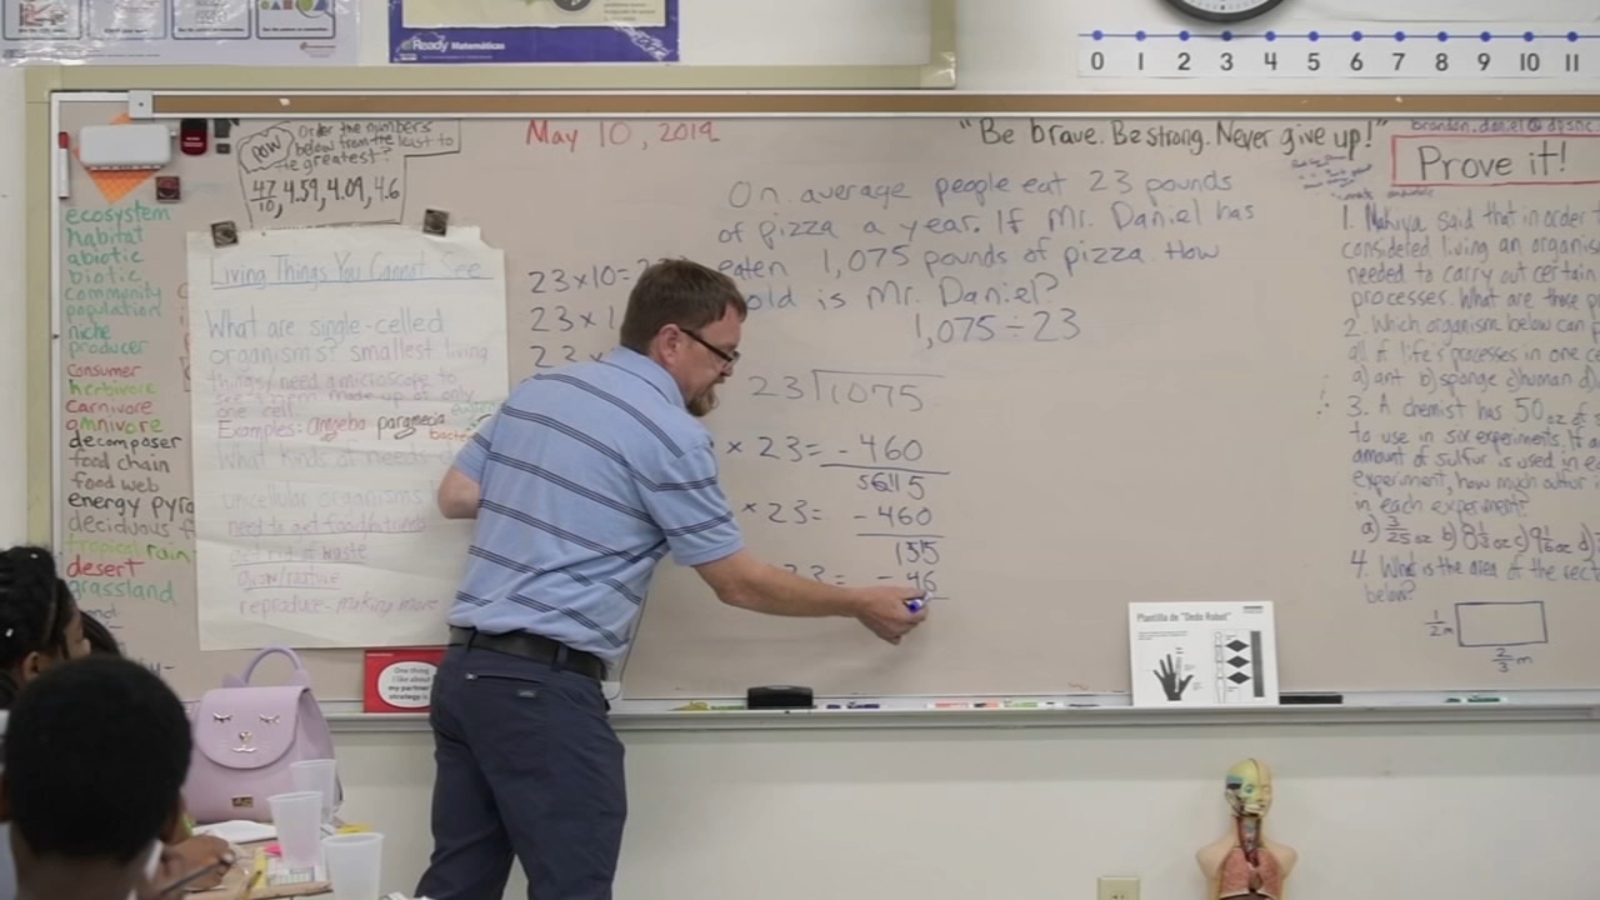 Ready Matemáticas
0 1 2 3 4 5 6 7 8 9 10 11
POW
Order the numbers
below from the least to
the greatest?
47/10, 4.59, 4.09, 4.6
May 10, 2019
"Be brave. Be strong. Never give up!"
brandon.daniel@dpsnc.
Prove it!
ecosystem
habitat
abiotic
biotic
community
population
niche
producer
consumer
herbivore
carnivore
omnivore
decomposer
food chain
food web
energy pyra
deciduous f
tropical rain
desert
grassland
Living Things You Cannot See
What are single-celled
organisms? smallest living
things/need a microscope to
see them made up of only
one cell.
Examples: amoeba paramecia
bacter
What kinds of needs d
unicellular organisms
need to get food/nutrients
get rid of waste
grow/mature
reproduce - making more
23×10=2
23×1
23×
On average people eat 23 pounds
of pizza a year. If Mr. Daniel has
eaten 1,075 pounds of pizza. How
old is Mr. Daniel?
1,075 ÷ 23
23 1075
× 23 = - 460
615
× 23 = - 460
155
23 = - 46
1. Makiya said that in order t
considered living an organis
needed to carry out certain
processes. What are those p
2. Which organism below can p
all of life's processes in one ce
a) ant b) sponge c) human d)
3. A chemist has 50 oz of s
to use in six experiments. If a
amount of sulfur is used in ea
experiment, how much sulfur i
in each experiment?
a) 3/25 oz b) 8 1/3 oz c) 9 1/6 oz d)
4. What is the area of the rect
below?
1/2 m
2/3 m
One thing
I like about
my partner
strategy is
Plantilla de "Dedo Robot"